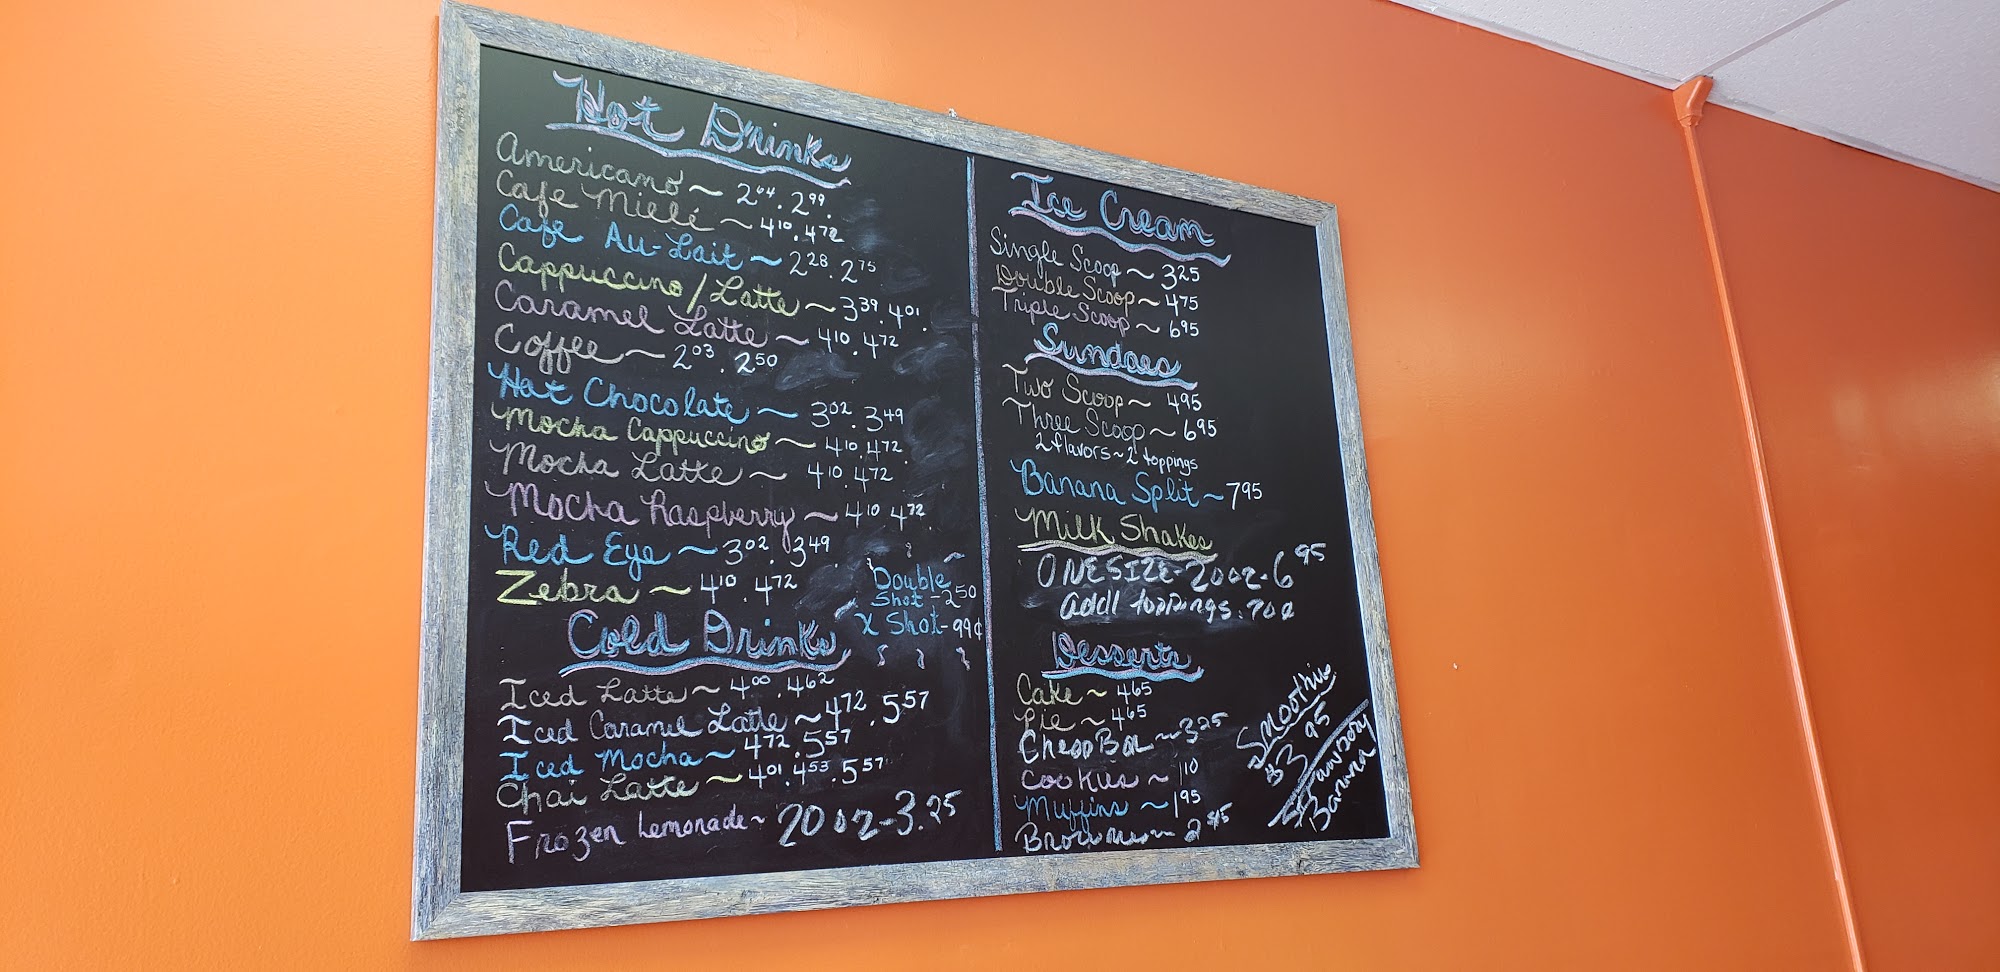 Hot Drinks
Americano ~ 2.64. 2.99.
Cafe Mielé ~ 4.10. 4.72
Cafe Au-Lait ~ 2.28. 2.75
Cappuccino/Latte ~ 3.39. 4.01.
Caramel Latte ~ 4.10. 4.72
Coffee ~ 2.03. 2.50
Hot Chocolate ~ 3.02. 3.49
Mocha Cappuccino ~ 4.10. 4.72.
Mocha Latte ~ 4.10. 4.72
Mocha Raspberry ~ 4.10 4.72.
Red Eye ~ 3.02. 3.49.
Zebra ~ 4.10. 4.72
Double
Shot - 2.50
X Shot - 99¢
Cold Drinks
Iced Latte ~ 4.00. 4.62
Iced Caramel Latte ~ 4.72. 5.57
Iced Mocha ~ 4.72. 5.57
Chai Latte ~ 4.01. 4.53. 5.57
Frozen Lemonade ~ 20oz - 3.25
Ice Cream
Single Scoop ~ 3.25
Double Scoop ~ 4.75
Triple Scoop ~ 6.95
Sundaes
Two Scoop ~ 4.95
Three Scoop ~ 6.95
2 flavors ~ 2 toppings
Banana Split ~ 7.95
Milk Shakes
ONE SIZE - 20oz - 6.95
add'l toppings .70¢
Desserts
Cake ~ 4.65
Pie ~ 4.65
~ 3.25
Cookies ~ 1.10
Muffins ~ 1.95
Brownies ~
Smoothie
$3.95
Banana